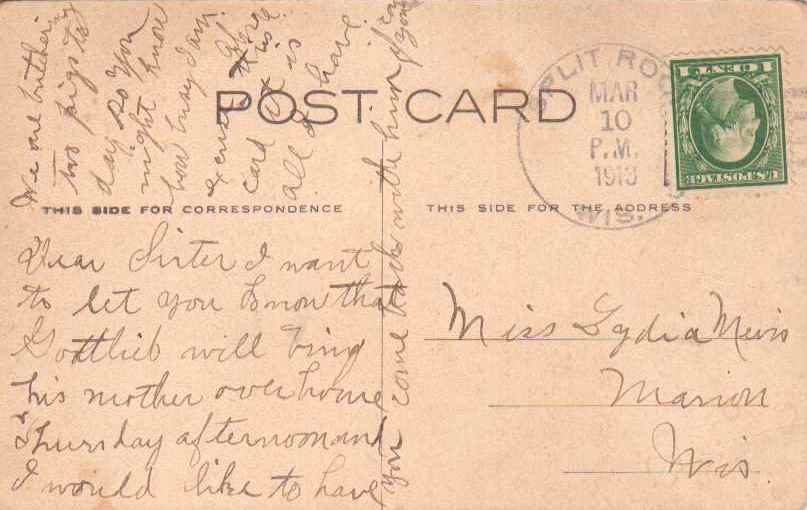 POST CARD
THIS SIDE FOR CORRESPONDENCE
THIS SIDE FOR THE ADDRESS
SPLIT ROCK
MAR
10
P.M.
1913
WIS.
1 CENT 1
U.S. POSTAGE
Dear Sister I want
to let you know that
Gottlieb will bing
his mother over home
Thursday afternoon and
I would like to have
you come back with him if you can
We are butchering
two pigs to
day so you
might know
how busy I am
excuse this
card it is
all I have
Miss Lydia Mevis
Marion
Wis.